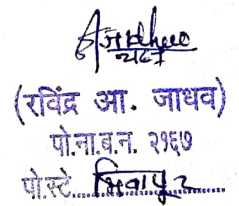 (रविंद्र आ. जाधव)
पो.ना.ब.न. २१६७
पो.स्टे. भिवापुर